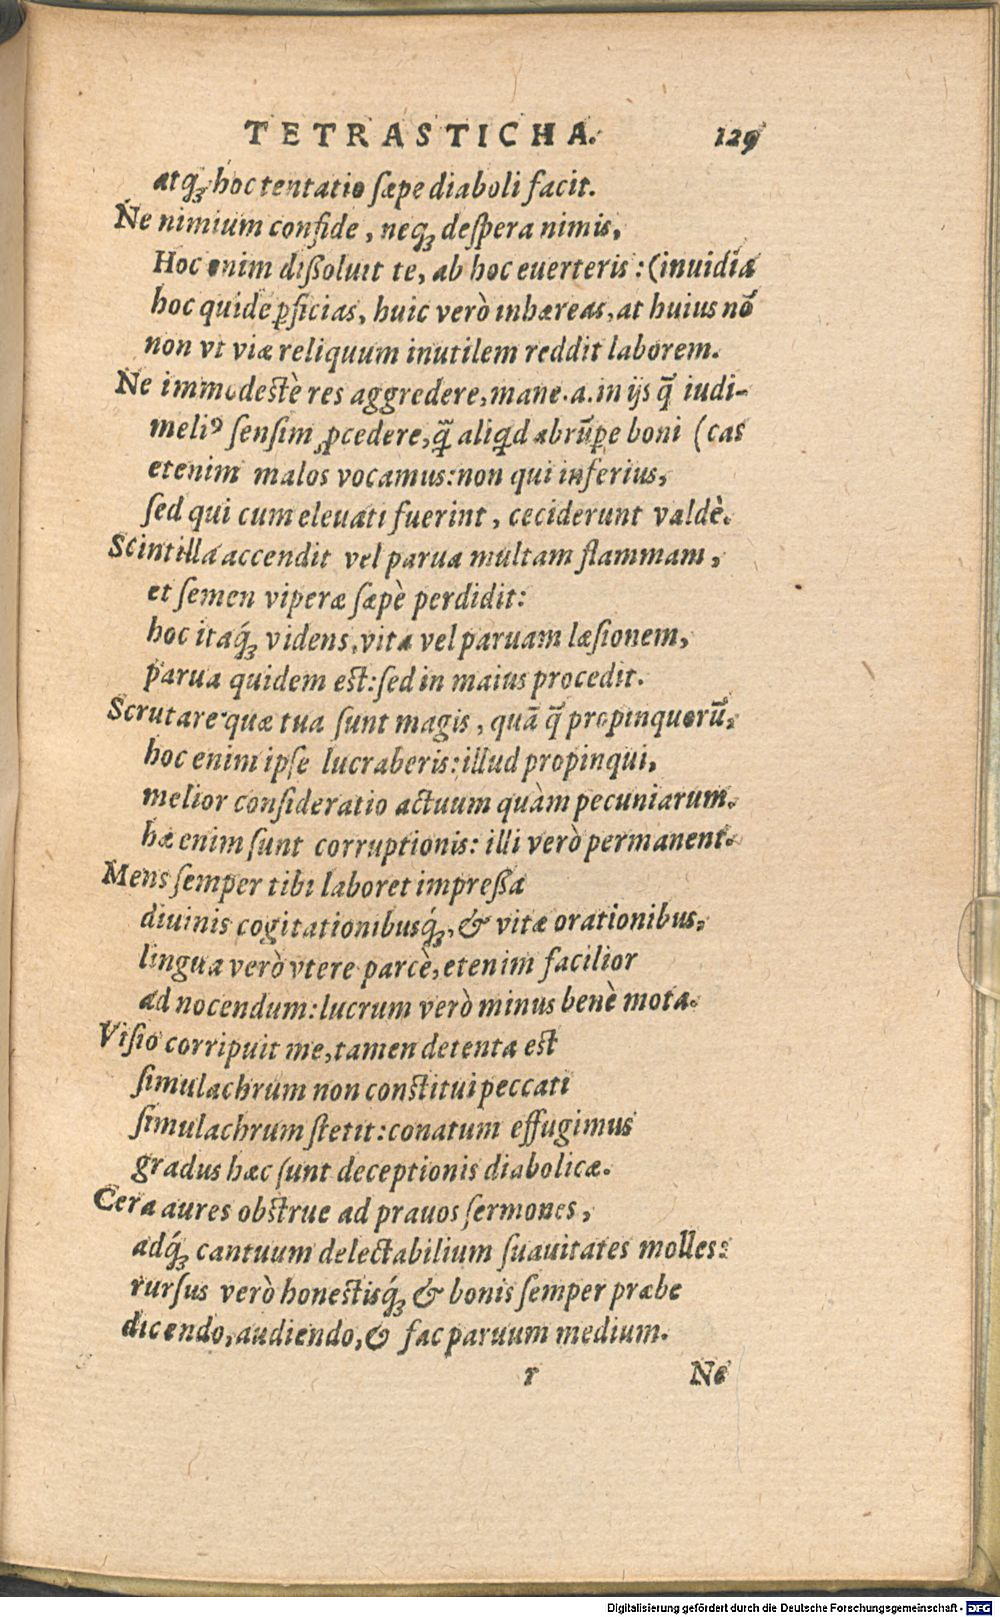 TETRASTICHA. 129
atq́ꝫ hoc tentatio ſæpe diaboli facit.
Ne nimium confide, neq́ꝫ deſpera nimis,
Hoc enim diſſoluit te, ab hoc euerteris: (inuidiæ
hoc quidē ꝑficias, huic verò inhæreas, at huius nō
non vt viæ reliquum inutilem reddit laborem.
Ne immodeſtè res aggredere, mane.a.in ijs q̄ iudi-
meliꝰ ſenſim ꝓcedere, q̄ aliqd abrūpe boni (cas
etenim malos vocamus: non qui inferius,
ſed qui cum eleuati fuerint, ceciderunt valdè.
Scintilla accendit vel parua multam flammam,
et ſemen viperæ ſæpè perdidit:
hoc itaq́ꝫ videns, vita vel paruam læſionem,
parua quidem eſt: ſed in maius procedit.
Scrutare quæ tua ſunt magis, quā q̄ propinquorū,
hoc enim ipſe lucraberis: illud propinqui,
melior conſideratio actuum quàm pecuniarum.
hæ enim ſunt corruptionis: illi verò permanent.
Mens ſemper tibi laboret impreſſa
diuinis cogitationibusq́ꝫ, & vitæ orationibus,
lingua verò vtere parcè, etenim facilior
ad nocendum: lucrum verò minus benè mota.
Viſio corripuit me, tamen detenta eſt
ſimulachrum non conſtitui peccati
ſimulachrum ſtetit: conatum effugimus
gradus hæc ſunt deceptionis diabolicæ.
Cera aures obſtrue ad prauos ſermones,
adq́ꝫ cantuum delectabilium ſuauitates molles:
rurſus verò honeſtisq́ꝫ & bonis ſemper præbe
dicendo, audiendo, & fac paruum medium.
r Ne
Digitalisierung gefördert durch die Deutsche Forschungsgemeinschaft - DFG